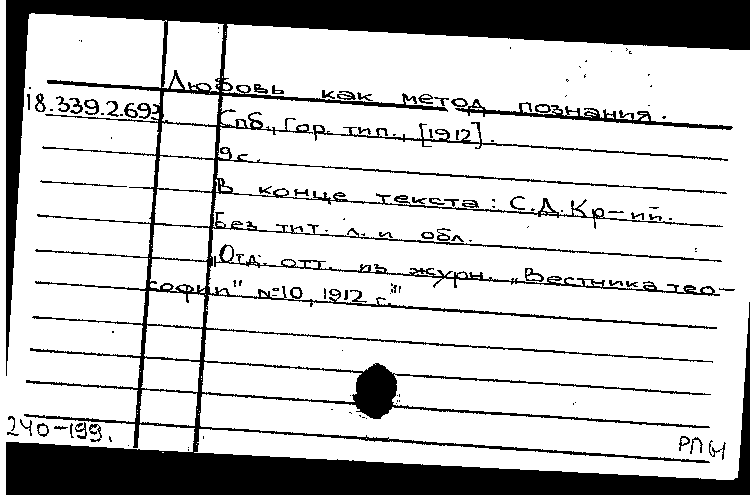 Любовь как метод познания.
18.339.2.693.
Спб., Гор. тип., [1912].
9 с.
В конце текста: С.Д.Кр-ий.
Без тит. л. и обл.
"Отд. отт. из журн. "Вестника тео-
софии" №10, 1912 г.""
240-199.